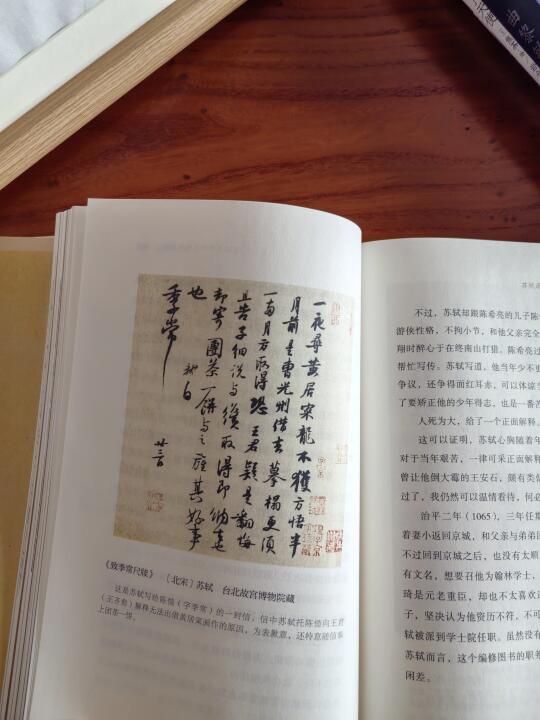 一夜尋黄居寀龍不獲方悟半
月前是曹光州借去摹榻更須
一兩月方取得恐王君疑是翻悔
且告子細說与纔取得即納去也
却寄團茶一餅与之旌其好事
也 軾白
季常 廿三日
《致季常尺牍》 [北宋] 苏轼 台北故宫博物院藏
这是苏轼写给陈慥（字季常）的一封信，信中苏轼托陈慥向王君
（王齐愈）解释无法出借黄居寀画作的原因，为表歉意，还特意随信奉
上团茶一饼。
苏轼
不过，苏轼却跟陈希亮的儿子陈
游侠性格，不拘小节，和他父亲完全
翔时醉心于在终南山打猎。陈希亮过
帮忙写传。苏轼写道，他当年少不更
争议，还争得面红耳赤，可以体谅
了要矫正他的少年得志，也是一番苦
人死为大，给了一个正面解释。
这可以证明，苏轼心胸随着年
对于当年艰苦，一律可采正面解释
曾让他倒大霉的王安石，颇有类似
过了，我仍然可以温情看待，何必
治平二年（1065），三年任期
着妻小返回京城，和父亲与弟弟
不过回到京城之后，也没有太顺
有文名，想要召他为翰林学士，
琦是元老重臣，却也不太喜欢
子，坚决认为他资历不符，不可
轼被派到学士院任职。虽然没有
苏轼而言，这个编修图书的职务
困差。